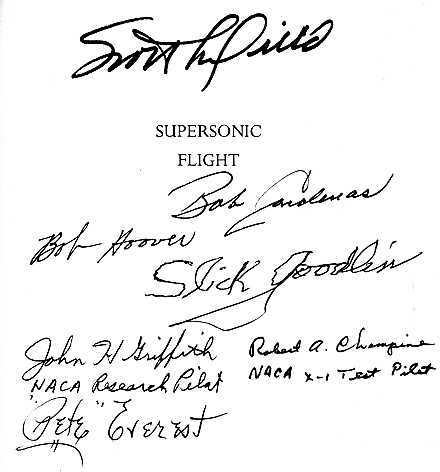 SUPERSONIC
FLIGHT
Bob Cardenas
Bob Hoover
Slick Goodlin
John H Griffith
NACA Research Pilot
Robert A. Champine
NACA X-1 Test Pilot
"Pete" Everest